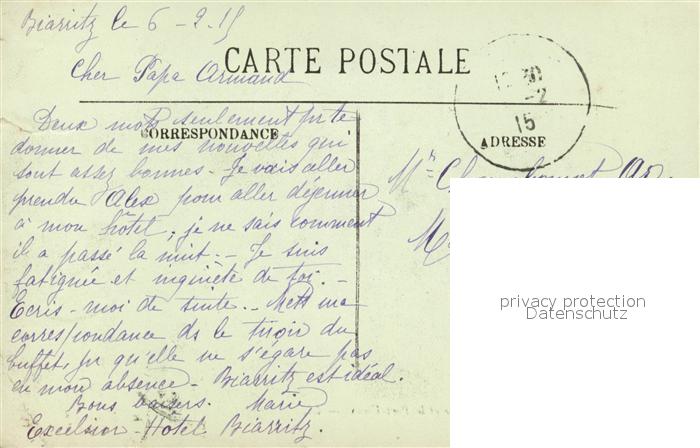 Biarritz le 6-2-15
CARTE POSTALE
Cher Papa Armand
Deux mots seulement pr te
CORRESPONDANCE
donner de mes nouvelles qui
sont assez bonnes - Je vais aller
prendre Alex pour aller déjeuner
à mon hôtel, je ne sais comment
il a passé la nuit. - Je suis
fatiguée et inquiète de toi. -
Ecris-moi de suite. - Mets ma
correspondance ds le tiroir du
buffet, pr qu'elle ne s'égare pas
en mon absence - Biarritz est idéal.
Bons baisers. Marie
Excelsior-Hotel Biarritz.
30
-2
15
ADRESSE
Mr
privacy protection
Datenschutz